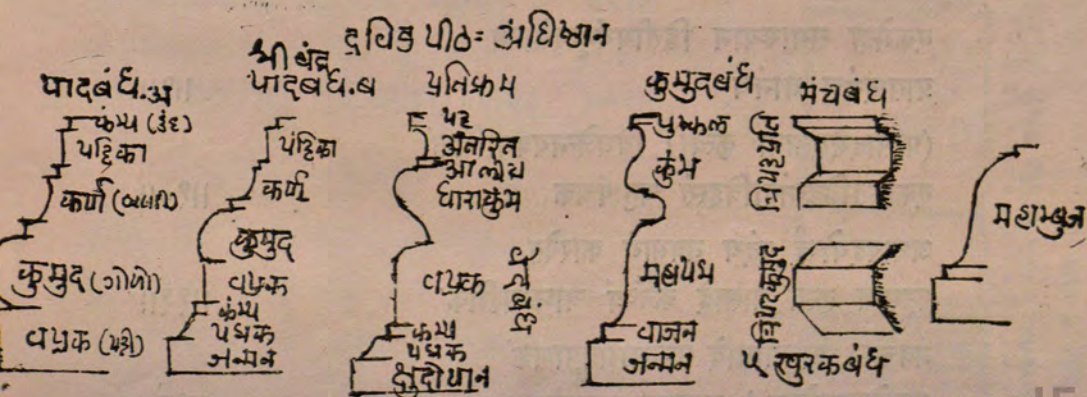 द्रविड पीठ= अधिष्ठान
पादबंध.अ
कम्प (
पट्टिका
कर्ण
कुमुद (गोळो)
वप्रक
श्री बंद्र
पादबंध.ब
पट्टिका
कर्ण
कुमुद
वप्रक
कंम्प
पद्मक
जन्मन
प्रतिक्रम
पट
अंतरित
आलींय
धाराकुंभ
वप्रक
कम्प
पद्मक
क्षुद्रोपान
कुमुदबंध
पुष्कल
कुंभ
महापद्म
वाजन
जन्मन
मंचबंध
त्रिपट्टबंध
त्रिपटकुमुद
खुरकबंध
महाम्बुज